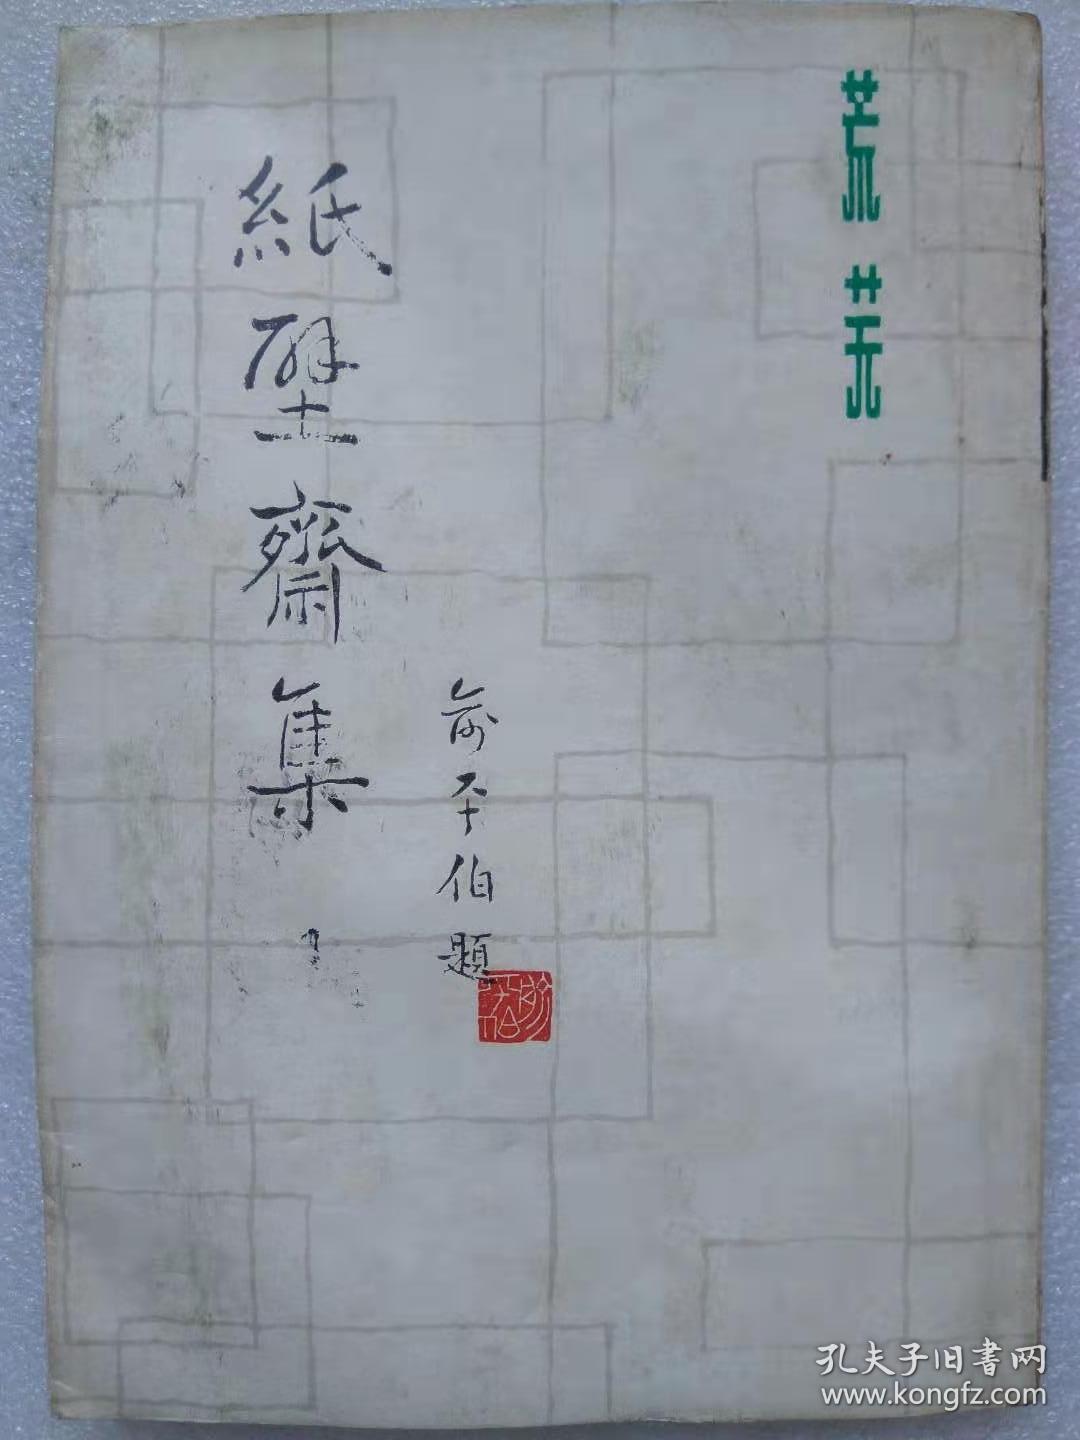 荒芜
紙壁齋集
俞平伯題
孔夫子旧書网
www.kongfz.com